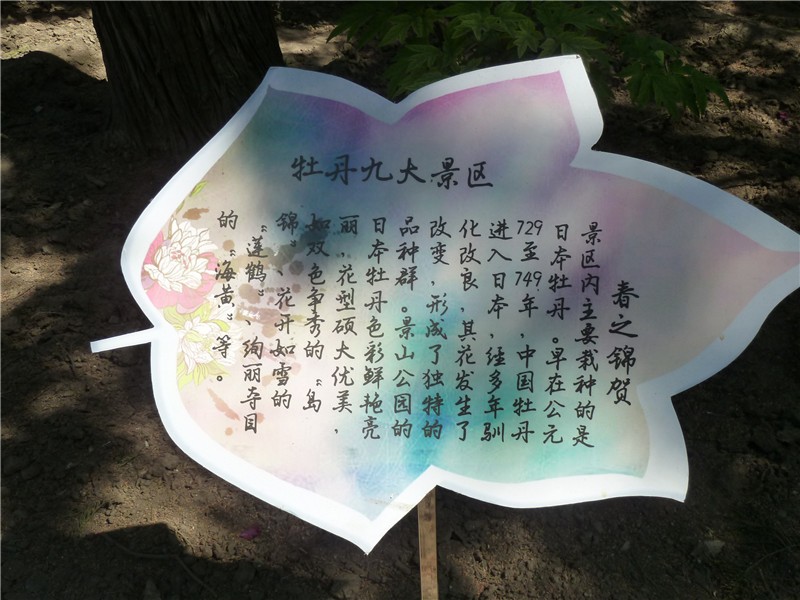 牡丹九大景区
春之锦贺
景区内主要栽种的是
日本牡丹。早在公元
729至749年，中国牡丹
进入日本，经多年驯
化改良，其花发生了
改变，形成了独特的
品种群。景山公园的
日本牡丹色彩鲜艳亮
丽，花型硕大优美，
如双色争秀的“岛
锦”、花开如雪的
“莲鹤”、绚丽夺目
的“海黄”等。